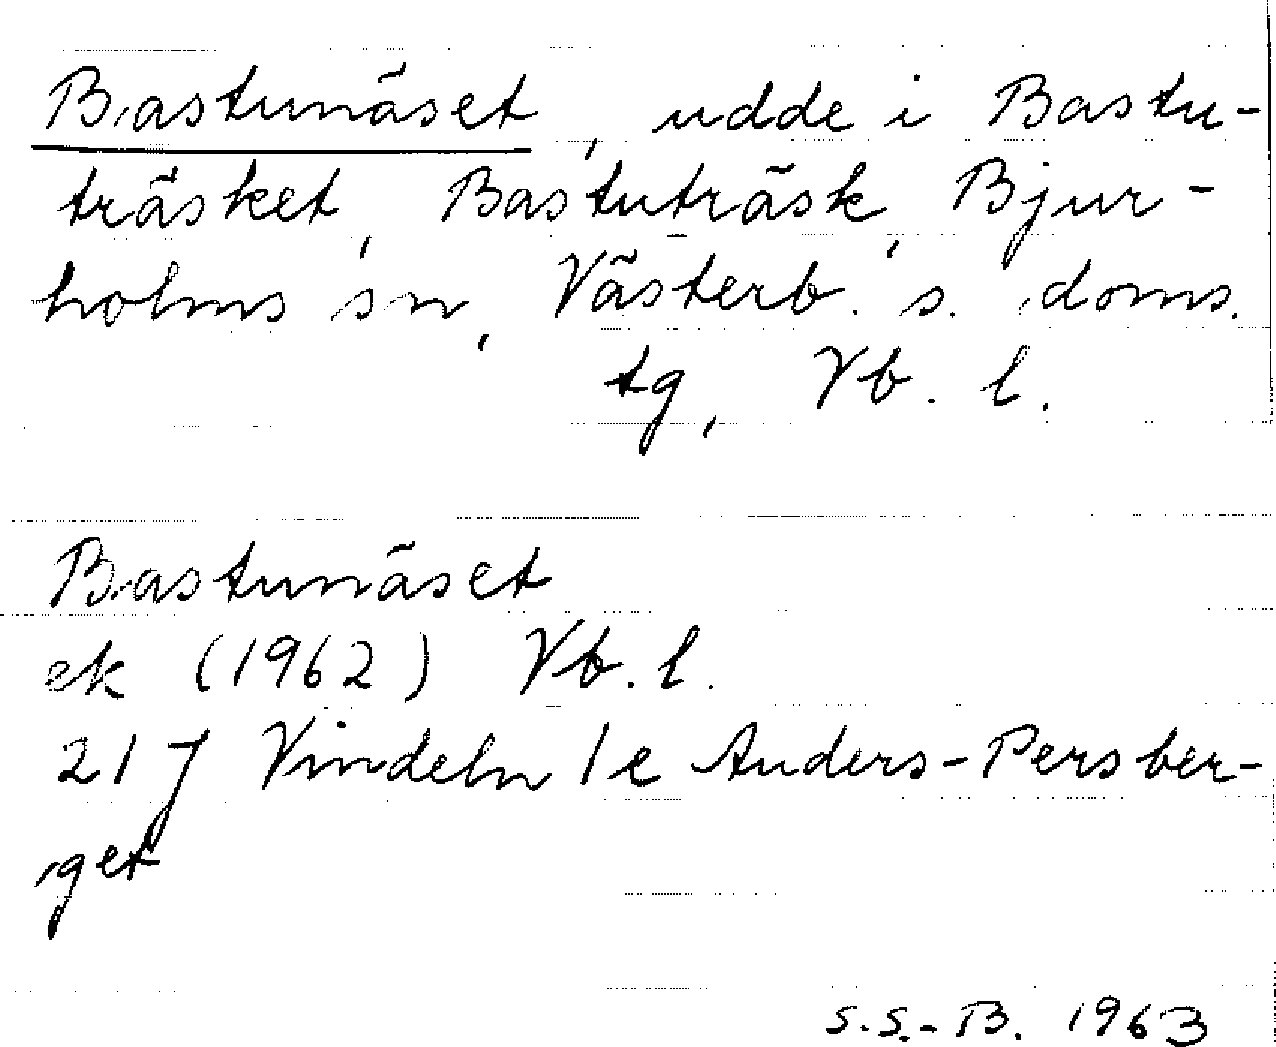 Bastunäset, udde i Bastu-
träsket, Bastuträsk, Bjur-
holms sn, Västerb. s. doms.
tg, Vb. l.
Bastunäset
ek (1962) Vb. l.
21 J Vindeln 1e Anders-Persber-
get
S.S.-B. 1963